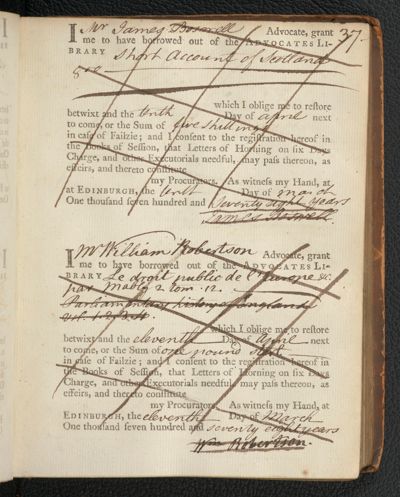 37.
I Mr James Boswell Advocate, grant
me to have borrowed out of the ADVOCATES LI-
BRARY Short Account of Scotland
8vo
which I oblige me to restore
betwixt and the tenth Day of April next
to come, or the Sum of five shillings
in case of Failzie; and I consent to the registration hereof in
the Books of Session, that Letters of Horning on six Days
Charge, and other Executorials needful, may pass thereon, as
effeirs, and thereto constitute
my Procurators. As witness my Hand, at
at EDINBURGH, the tenth Day of march
One thousand seven hundred and Seventy eight years
James Boswell.
I Mr William Robertson Advocate, grant
me to have borrowed out of the ADVOCATES LI-
BRARY Le droit public de l'Europe &c.
par Mably 2 tom. 12.
Parliamentary history of England
vol. 1. 2. 3. 4.
which I oblige me to restore
betwixt and the eleventh Day of April next
to come, or the Sum of one pound Ster.
in case of Failzie; and I consent to the registration hereof in
the Books of Session, that Letters of Horning on six Days
Charge, and other Executorials needful may pass thereon, as
effeirs, and thereto constitute
my Procurators. As witness my Hand, at
EDINBURGH, the eleventh Day of March
One thousand seven hundred and seventy eight years
Wm Robertson.